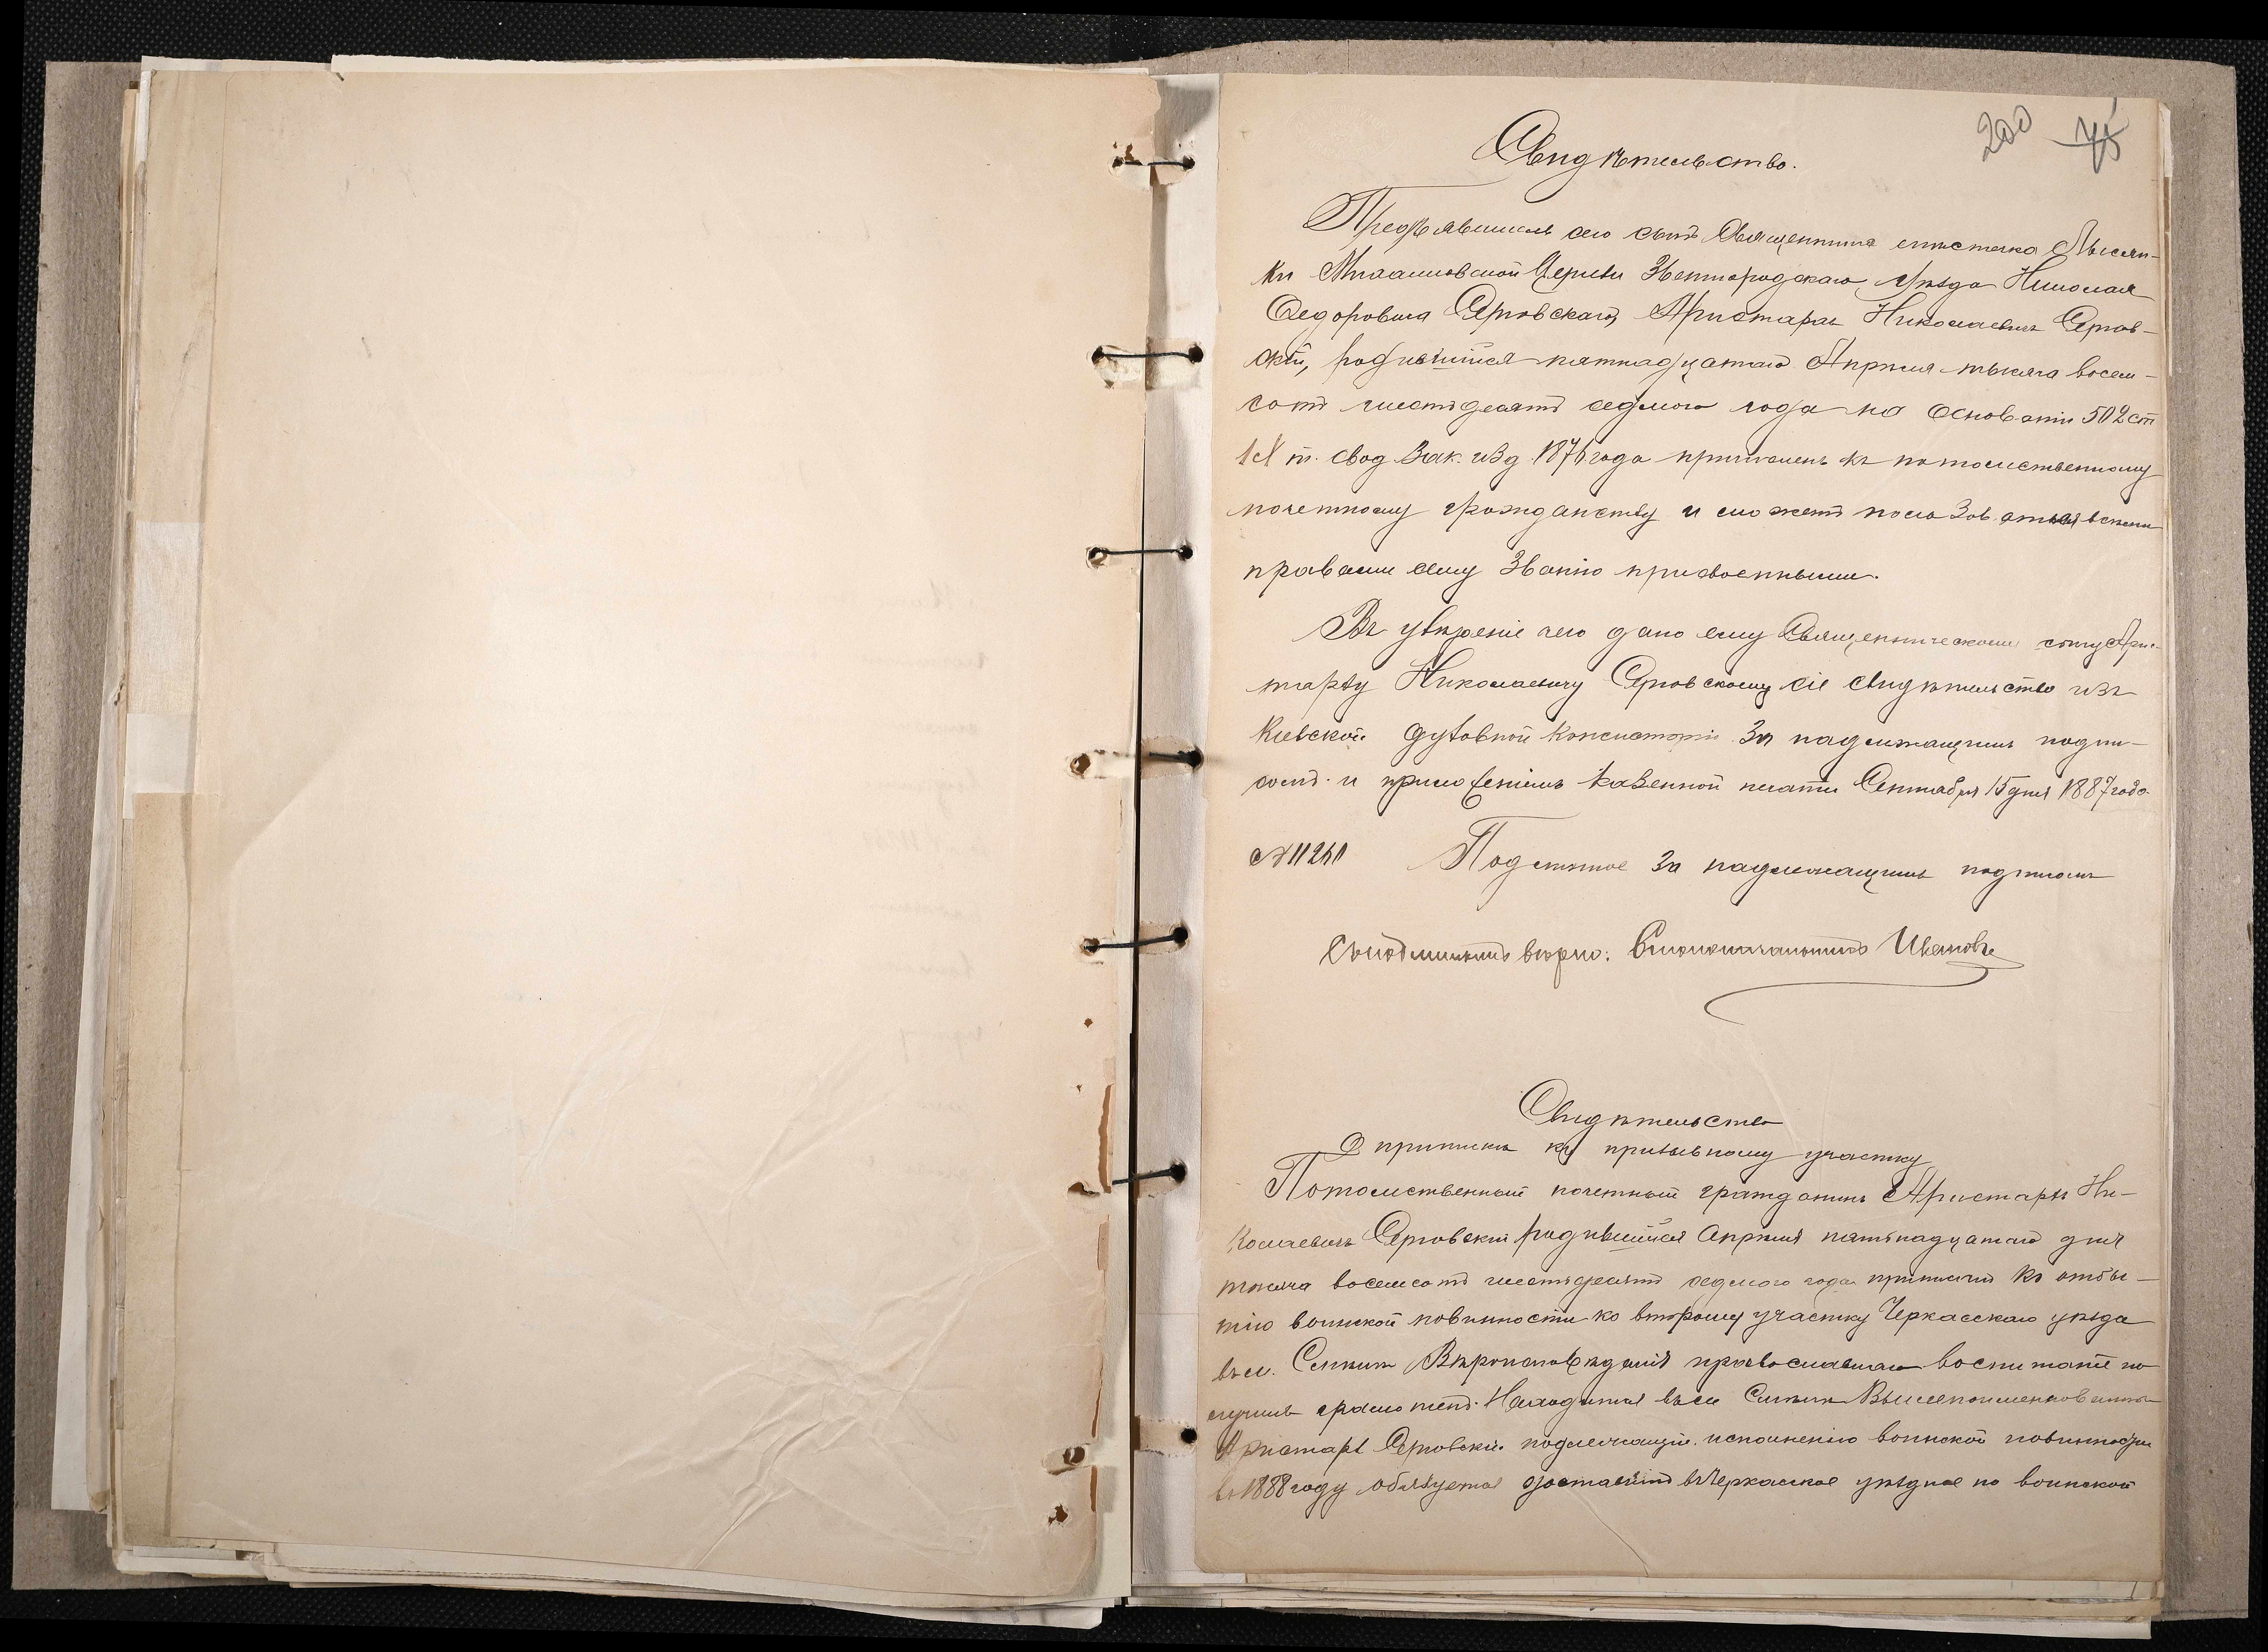 200 75
Свидѣтельство.
Предъявитель сего сынъ Священника мѣстечка Лысян-
ки Михайловской Церкви Звенигородскаго Уѣзда Николая
Федоровича Яровскаго, Аристархъ Николаевичъ Яров-
скій, родившійся пятнадцатаго Апрѣля тысяча восем-
сотъ шестьдесятъ седьмого года на основаніи 502 ст
IX т. свод Зак. изд. 1876 года причисленъ къ потомственному
почетному гражданству и можетъ пользоваться всѣми
правами сему Званію присвоенными.
Въ увѣреніе чего дано ему Священническому сыну Арис-
тарху Николаевичу Яровскому сіе свидѣтельство изъ
Кіевской духовной Консисторіи За надлежащимъ подпи-
сомъ и приложеніемъ Казенной печати Сентября 15 дня 1887 года
№ 11261 Подлинное За надлежащимъ подписомъ
Съ подлиннымъ вѣрно: Столоначальникъ Ивановъ
Свидѣтельство
О припискѣ къ призывному участку
Потомственный почетный гражданинъ Аристархъ Ни-
колаевичъ Яровскій родившійся Апрѣля пятнадцатаго дня
тысяча восемсотъ шестьдесятъ седьмого года приписанъ Къ отбы-
тію воинской повинности ко второму участку Черкасскаго уѣзда
въ м. Вѣроисповѣданія православнаго воспитаніе по
лучилъ Находится въ м. Вышепоименованный
Аристархъ Яровскій подлежащій исполненію воинской повинности
въ 1888 году обязуется доставить въ Черкасское уѣздное по воинской